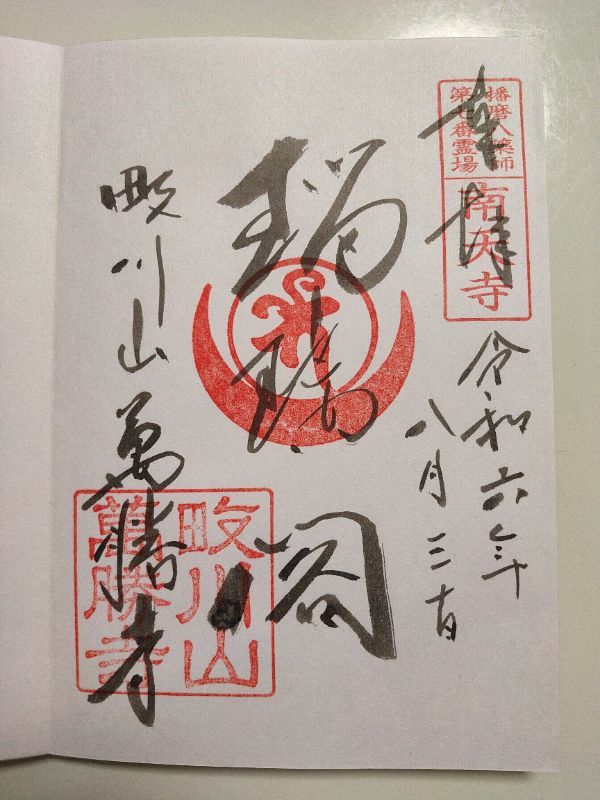 播磨八薬師
第七番霊場
南天寺
奉拝
令和六年
八月三十日
瑠璃閣
畋川山萬勝寺
畋川山
萬勝寺